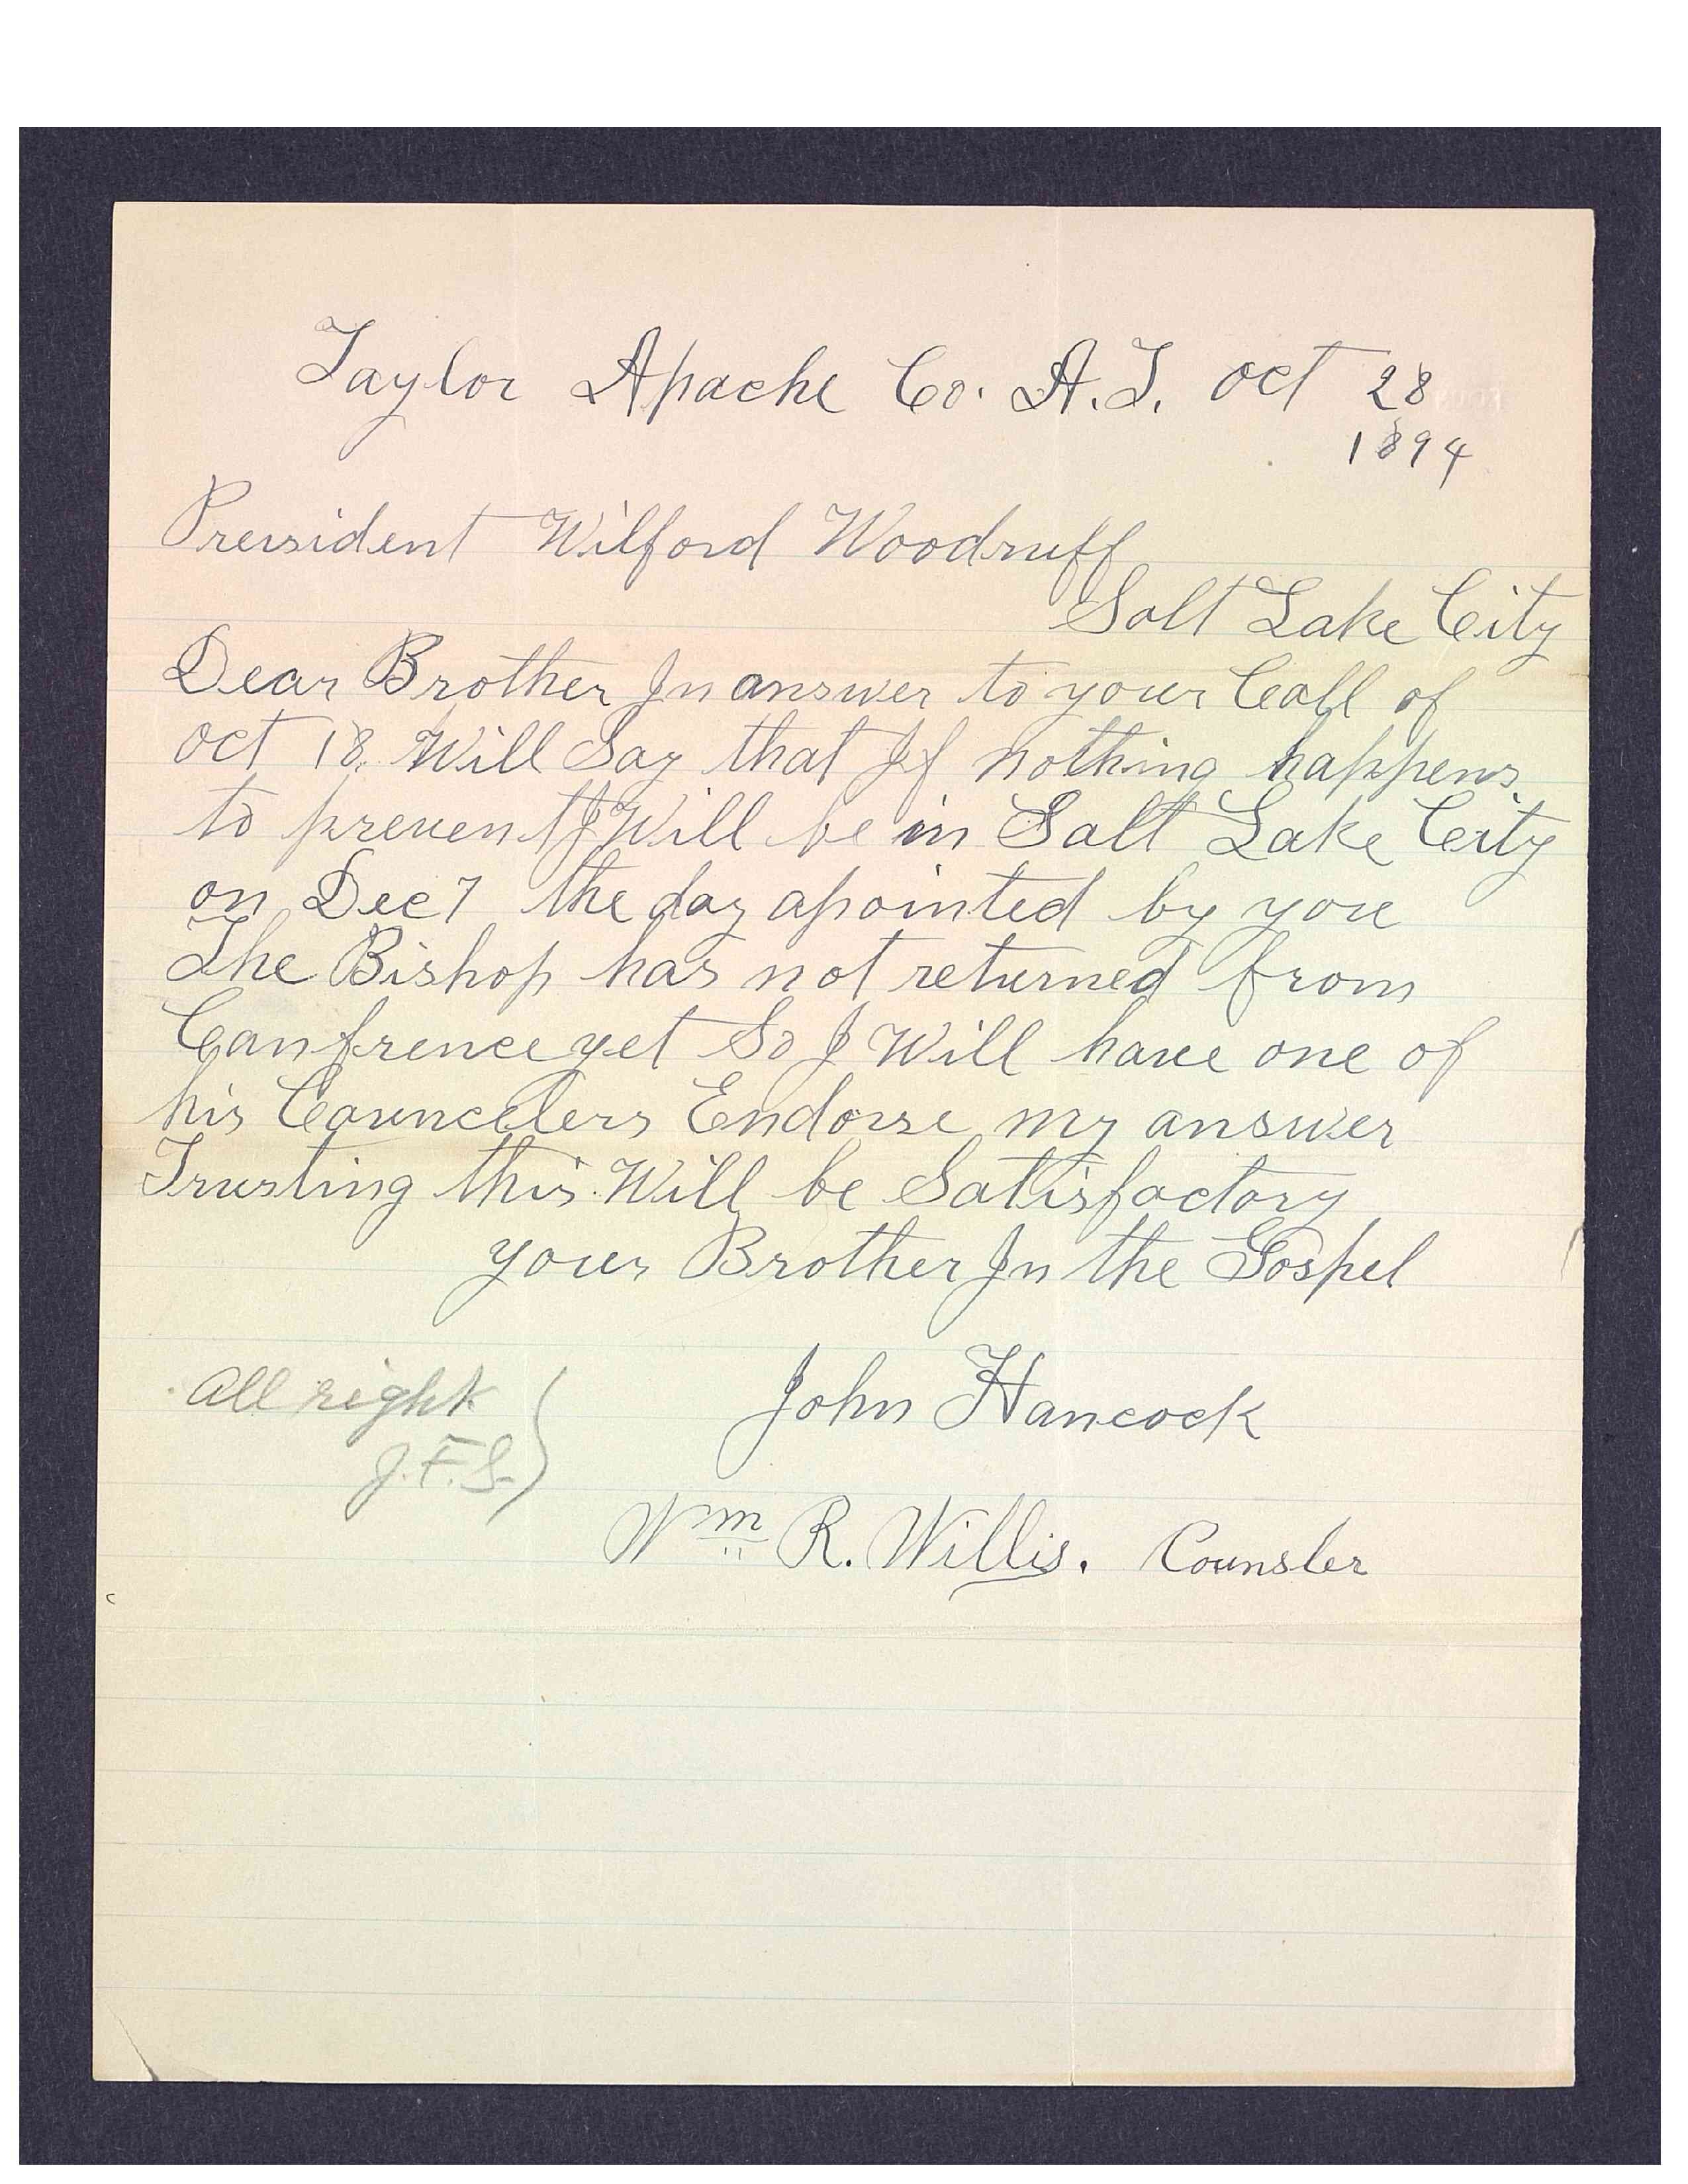 Taylor Apache Co. A.T. oct 28
1894
Preisident Wilford Woodruff
Salt Lake City
Dear Brother In answer to your Call of
oct 18. Will Say that If nothing happens
to prevent I Will be in Salt Lake City
on Dec 7 the day apointed by you
The Bishop has not returned from
Canfrence yet So I Will have one of
his Councelers Endorse my answer
Trusting this Will be Satisfactory
your Brother In the Gospel
John Hancock
All right
J.F.S.
Wm R. Willis. Counsler